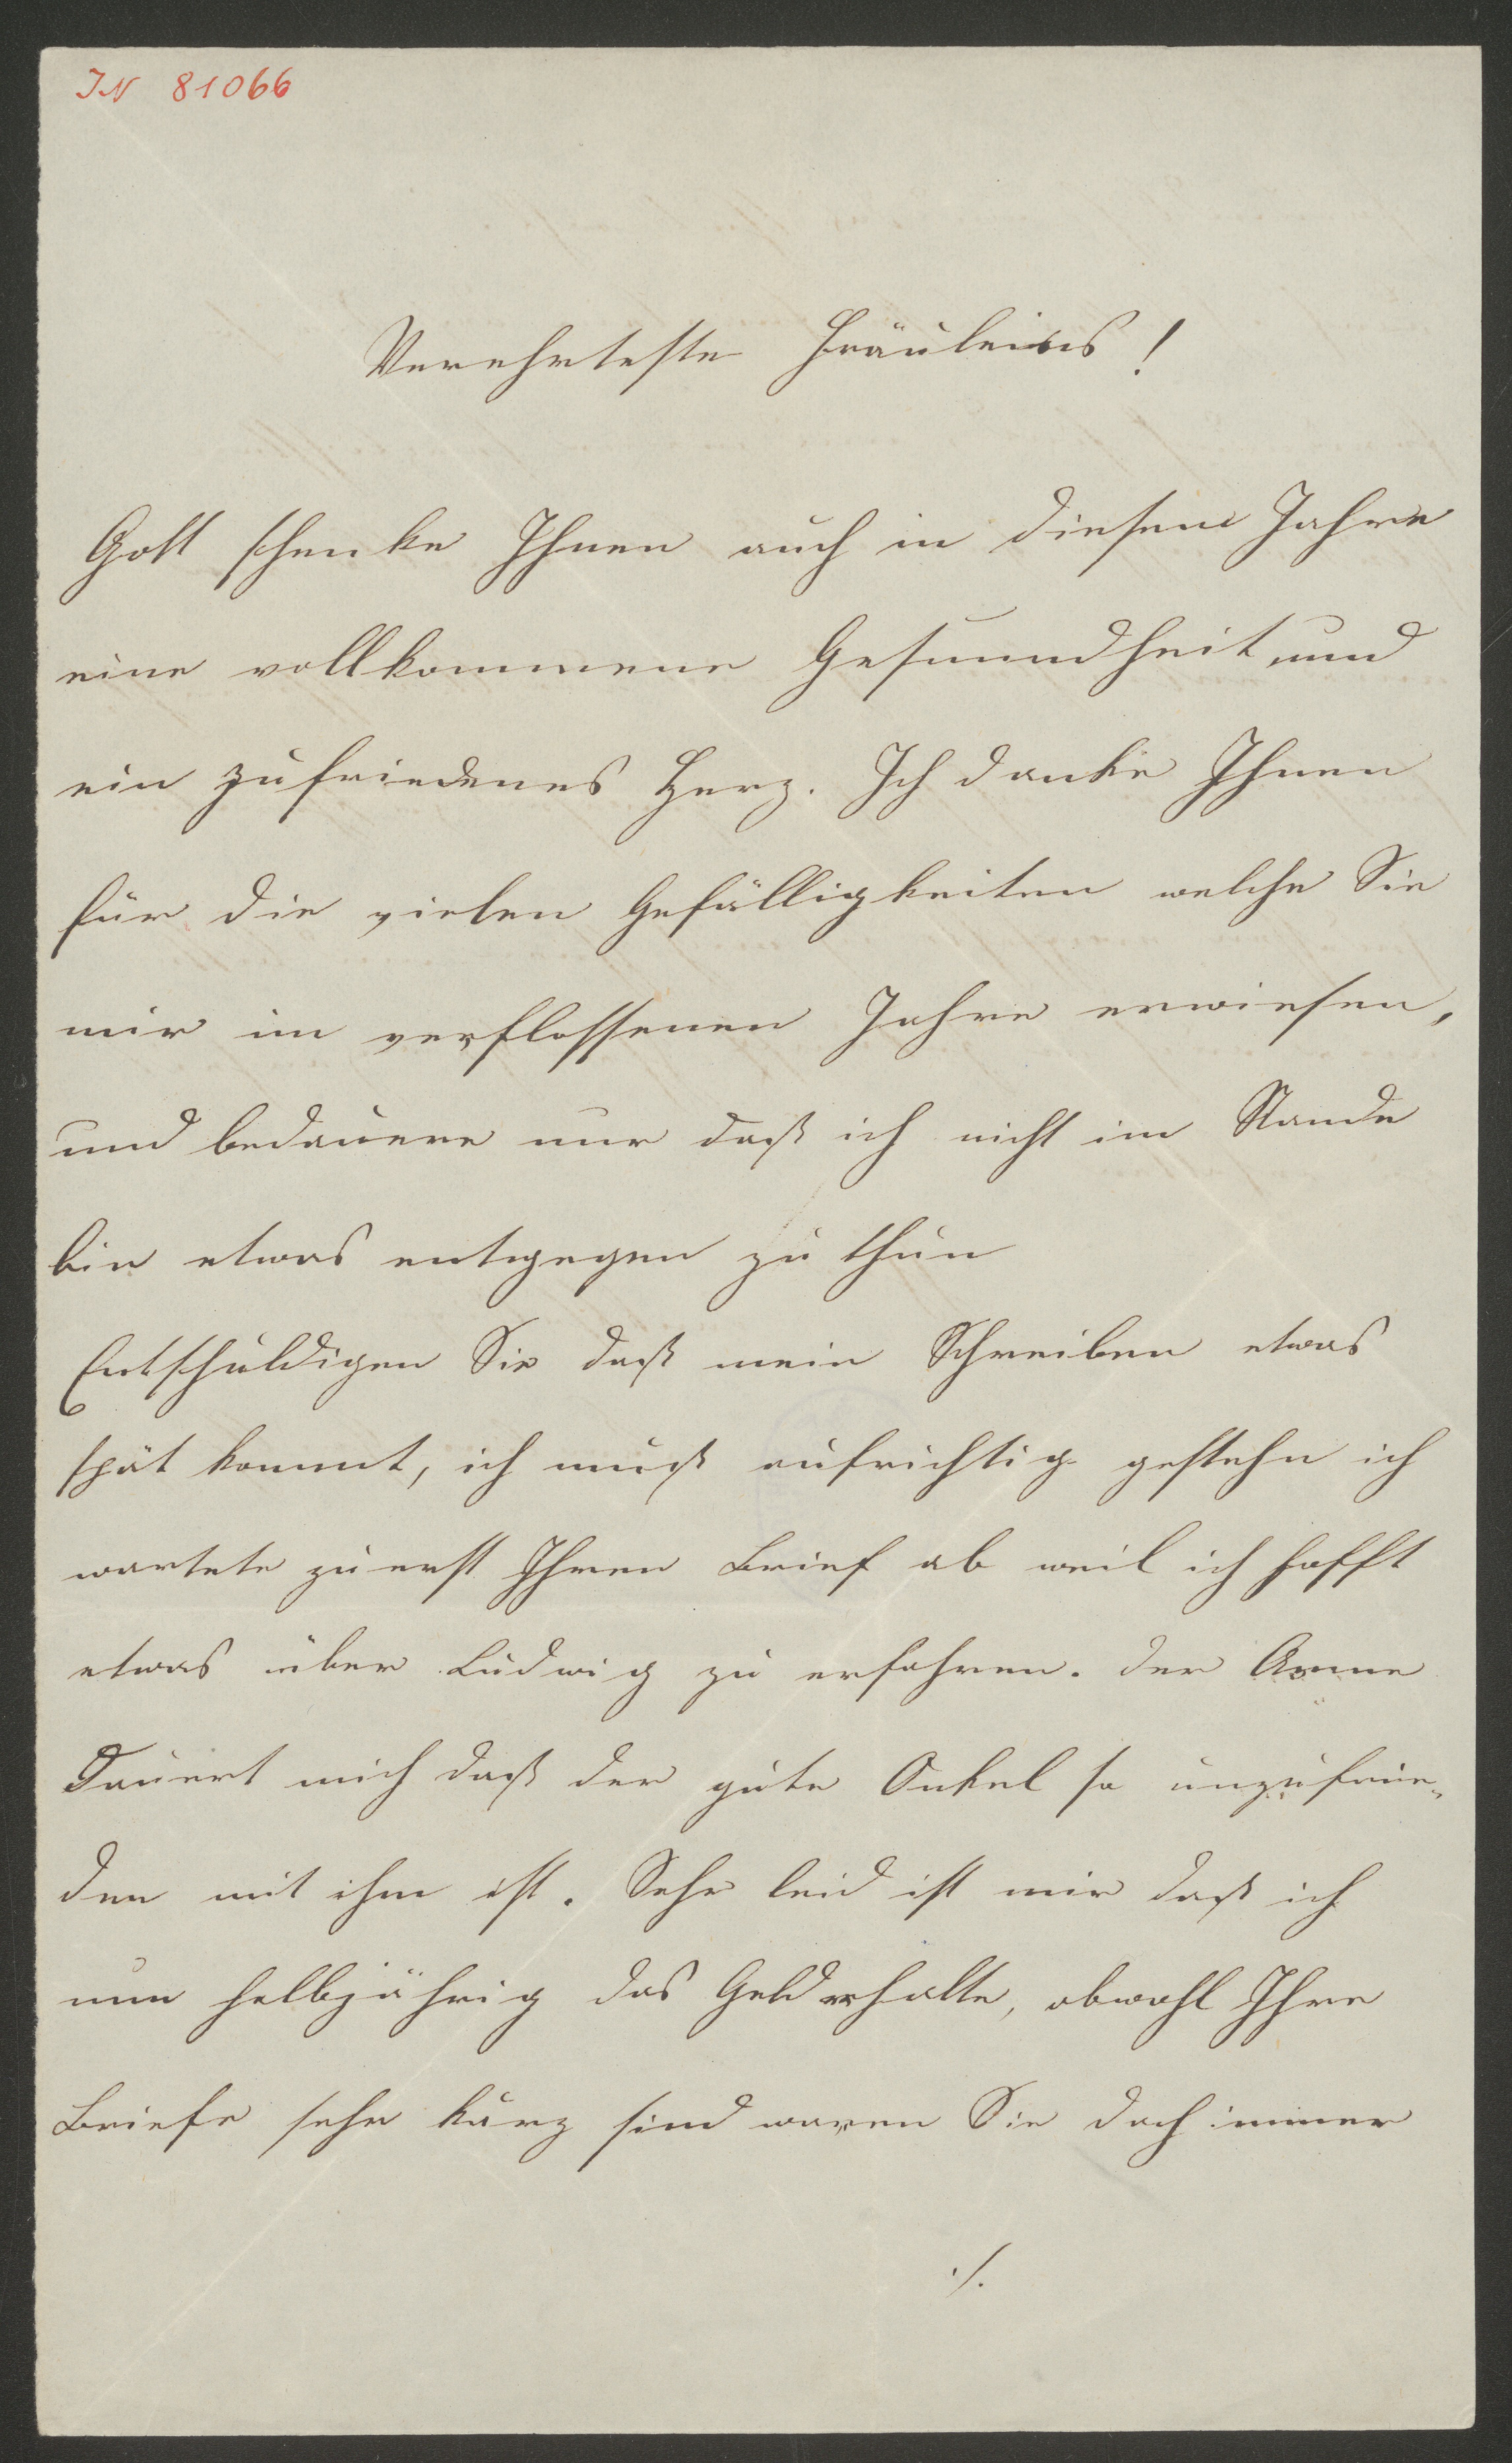 IN 81066
Verehrteste Fräuleins!
Gott schenke Ihnen auch in diesem Jahre
eine vollkommene Gesundheit und
ein zufriedenes Herz. Ich danke Ihnen
für die vielen Gefälligkeiten welche Sie
mir im verflossenen Jahre erwiesen,
und bedauere nur daß ich nicht im Stande
bin etwas entgegen zu thun
Entschuldigen Sie daß mein Schreiben etwas
spät kommt, ich muß aufrichtig gestehn ich
wartete zuerst Ihren Brief ab weil ich hofft
etwas über Ludwig zu erfahren. der Arme
Dauert mich daß der gute Onkel so unzufrie-
den mit ihm ist. Sehr leid ist mir daß ich
nun halbjährig das Geld erhalte, obwohl Ihre
Briefe sehr kurz sind waren Sie doch immer
./.